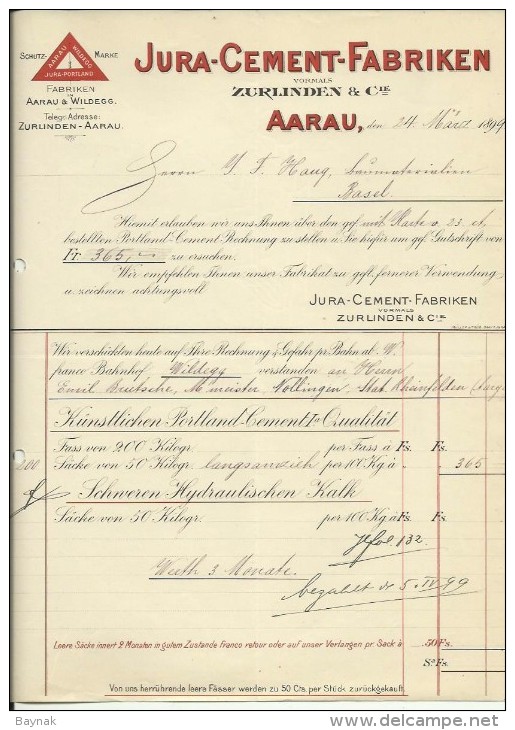 SCHUTZ- MARKE
AARAU WILDEGG
1
JURA-PORTLAND
FABRIKEN
IN
AARAU & WILDEGG.
Telegr. Adresse:
ZURLINDEN-AARAU.
JURA-CEMENT-FABRIKEN
VORMALS
ZURLINDEN & CIE.
AARAU, den 24. März 1899
Herrn J. F. Haug, Baumaterialien
Basel.
Hiemit erlauben wir uns Ihnen über den gefl. mit Karte v. 23. ct.
bestellten Portland-Cement Rechnung zu stellen u. Sie hiefür um gefl. Gutschrift von
Fr. 365,- zu ersuchen.
Wir empfehlen Ihnen unser Fabrikat zu gefl. fernerer Verwendung
u. zeichnen achtungsvoll
JURA-CEMENT-FABRIKEN
VORMALS
ZURLINDEN & CIE.
Wir verschickten heute auf Ihre Rechnung & Gefahr pr. Bahn ab W.
franco Bahnhof Wildegg verstanden an Herrn
Emil Bretsche, Mmeister Stat. Rheinfelden (Aarg.
Künstlichen Portland-Cement Ia Qualität
Fass von 200 Kilogr. per Fass à Fs. Fs.
200 Säcke von 50 Kilogr. langsamzieh per 100 Kg à " " 365
Schweren Hydraulischen Kalk
Säcke von 50 Kilogr. per 100 Kg à Fs. Fs.
132.
Werth 3 Monate.
bezahlt d. 5. IV 99
Leere Säcke innert 2 Monaten in gutem Zustande franco retour oder auf unser Verlangen pr. Sack à -.50 Fs.
Sa Fs.
Von uns herrührende leere Fässer werden zu 50 Cts. per Stück zurückgekauft.
Baynak
www.delcampe.net